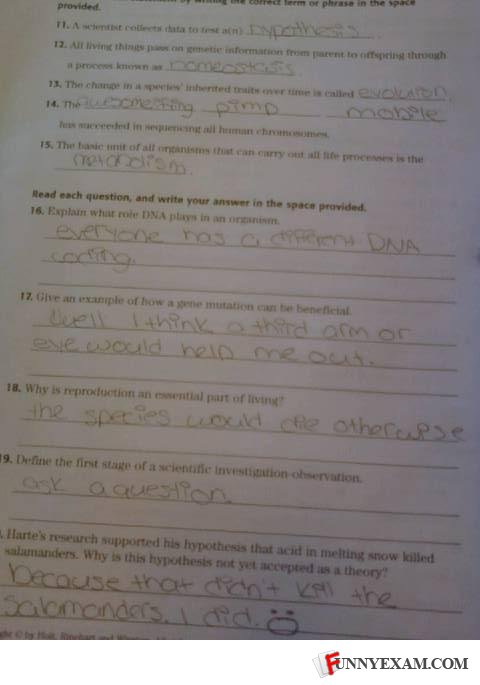 writing the correct term or phrase in the space
provided.
11. A scientist collects data to test a(n) hypothesis.
12. All living things pass on genetic information from parent to offspring through
a process known as homeostasis.
13. The change in a species' inherited traits over time is called evolution.
14. The awesome pimp mobile
has succeeded in sequencing all human chromosomes.
15. The basic unit of all organisms that can carry out all life processes is the
Read each question, and write your answer in the space provided.
16. Explain what role DNA plays in an organism.
everyone has a different DNA
coding.
17. Give an example of how a gene mutation can be beneficial.
Well I think a third arm or
eye would help me out.
18. Why is reproduction an essential part of living?
the species would die otherwise
19. Define the first stage of a scientific investigation-observation.
ask a question.
Harte's research supported his hypothesis that acid in melting snow killed
salamanders. Why is this hypothesis not yet accepted as a theory?
because that didn't kill the
salamanders. I did.
by Holt, Rinehart and
FUNNYEXAM.COM